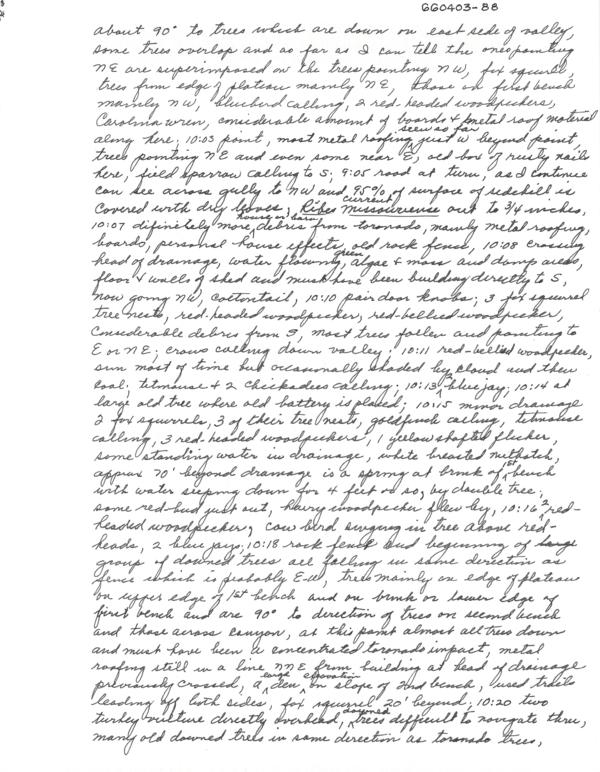 GG0403-88
about 90° to trees which are down on east side of valley,
some trees overlap and so far as I can tell the ones pointing
NE are superimposed on the trees pointing NW, fox squirrel,
trees from edge of plateau mainly NE, those on first bench
mainly NW, bluebird calling, 2 red-headed woodpeckers,
Carolina wren, considerable amount of boards & metal roof material
along here; 10:03 point, most metal roofing seen so far just W beyond point
trees pointing NE and even some near E, old box of rusty nails
here, field sparrow calling to S; 9:05 road at turn, as I continue
can see across gully to NW and 95% of surface of sidehill is
covered with dry leaves, Ribes missouriense current out to 3/4 inches,
10:07 difinitely more house or barn debris from toronado, mainly metal roofing,
boards, personal house effects, old rock fence, 10:08 crossing
head of drainage, water flowing, green algae & moss and damp areas,
floor & walls of shed and must have been building directly to S,
now going NW, cottontail, 10:10 pair door knobs; 3 fox squirrel
tree nests, red-headed woodpecker, red-bellied woodpecker,
considerable debris from S, most trees fallen and pointing to
E or NE; crows calling down valley; 10:11 red-bellied woodpecker,
sun most of time but occasionally shaded by cloud and then
cool; titmouse & 2 chickadees calling; 10:13 2 blue jay; 10:14 at
large old tree where old battery is placed; 10:15 minor drainage
2 fox squirrels, 3 of their tree nests, goldfinch calling, titmouse
calling, 3 red-headed woodpeckers, 1 yellow shafted flicker,
some standing water in drainage, white breasted nuthatch,
approx 70' beyond drainage is a spring at brink of 1st bench
with water seeping down for 4 feet or so, by double tree;
some red-bud just out, hairy woodpecker flew by, 10:16 2 red-
headed woodpecker; cow bird singing in tree above red-
heads, 2 blue jays; 10:18 rock fence and beginning of large
group of downed trees all falling in same direction as
fence which is probably E-W, trees mainly on edge of plateau
on upper edge of 1st bench and on brink or lower edge of
first bench and are 90° to direction of trees on second bench
and those across canyon, at this point almost all trees down
and must have been a concentrated toronado impact, metal
roofing still in a line NNE from building at head of drainage
previously crossed, a large den excavation on slope of 2nd bench, used trails
leading off both sides, fox squirrel 20' beyond; 10:20 two
turkey vulture directly overhead, downed trees difficult to navigate thru,
many old downed trees in same direction as toronado trees,